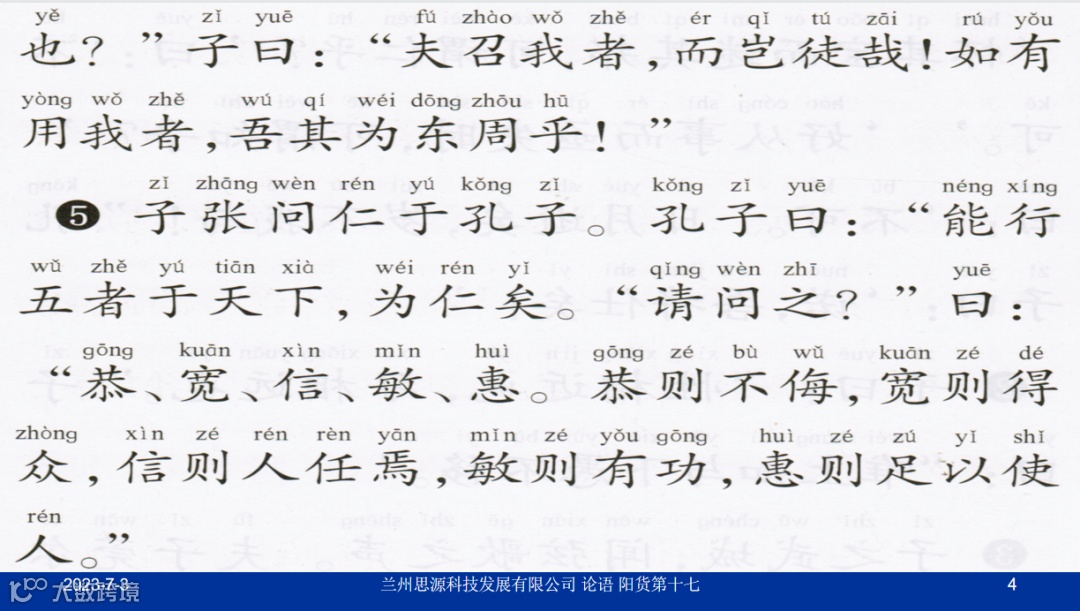 yě zǐ yuē fú zhào wǒ zhě ér qǐ tú zāi rú yǒu
也？”子曰：“夫召我者，而岂徒哉！如有
yòng wǒ zhě wú qí wéi dōng zhōu hū
用我者，吾其为东周乎！”
zǐ zhāng wèn rén yú kǒng zǐ kǒng zǐ yuē néng xíng
❺ 子张问仁于孔子。孔子曰：“能行
wǔ zhě yú tiān xià wéi rén yǐ qǐng wèn zhī yuē
五者于天下，为仁矣。“请问之？”曰：
gōng kuān xìn mǐn huì gōng zé bù wǔ kuān zé dé
“恭、宽、信、敏、惠。恭则不侮，宽则得
zhòng xìn zé rén rèn yān mǐn zé yǒu gōng huì zé zú yǐ shǐ
众，信则人任焉，敏则有功，惠则足以使
rén
人。”
2023-7-3 兰州思源科技发展有限公司 论语 阳货第十七 4
大数跨境